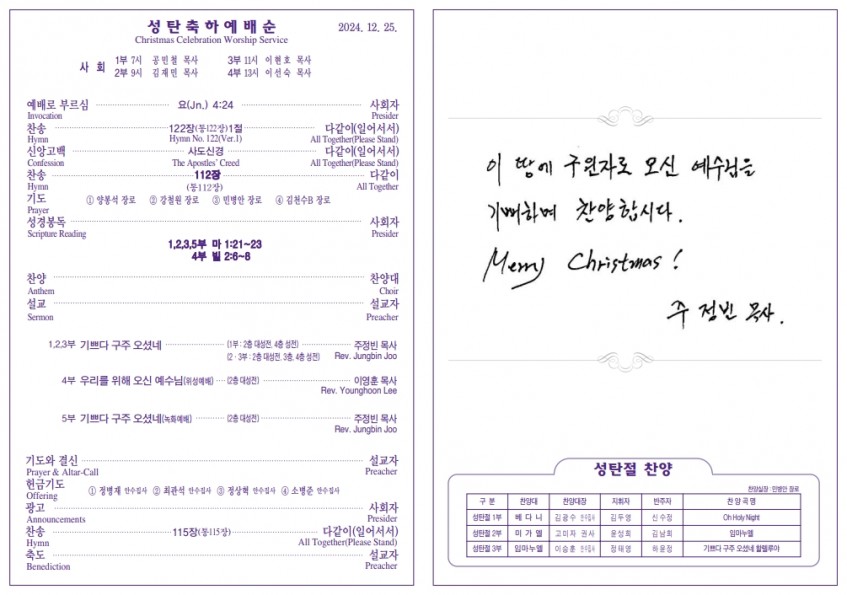 성탄축하예배순 2024. 12. 25.
Christmas Celebration Worship Service
사 회 1부 7시 공민철 목사 3부 11시 이현호 목사
2부 9시 김재민 목사 4부 13시 이선숙 목사
예배로 부르심 요(Jn.) 4:24 사회자
Invocation Presider
찬송 122장(통122장)1절 다같이(일어서서)
Hymn Hymn No. 122(Ver.1) All Together(Please Stand)
신앙고백 사도신경 다같이(일어서서)
Confession The Apostles' Creed All Together(Please Stand)
찬송 112장 다같이
Hymn (통112장) All Together
기도 ① 양봉석 장로 ② 강철원 장로 ③ 민병안 장로 ④ 김천수B 장로
Prayer
성경봉독 사회자
Scripture Reading Presider
1,2,3,5부 마 1:21~23
4부 빌 2:6~8
찬양 찬양대
Anthem Choir
설교 설교자
Sermon Preacher
1,2,3부 기쁘다 구주 오셨네 (1부 : 2층 대성전, 4층 성전) 주정빈 목사
(2 · 3부 : 2층 대성전, 3층, 4층 성전) Rev. Jungbin Joo
4부 우리를 위해 오신 예수님(위성예배) (2층 대성전) 이영훈 목사
Rev. Younghoon Lee
5부 기쁘다 구주 오셨네(녹화예배) (2층 대성전) 주정빈 목사
Rev. Jungbin Joo
기도와 결신 설교자
Prayer & Altar-Call Preacher
헌금기도 ① 정병재 안수집사 ② 최관석 안수집사 ③ 정상혁 안수집사 ④ 소병준 안수집사
Offering
광고 사회자
Announcements Presider
찬송 115장(통115장) 다같이(일어서서)
Hymn All Together(Please Stand)
축도 설교자
Benediction Preacher
이 땅에 구원자로 오신 예수님을
기뻐하며 찬양합시다.
Merry Christmas!
주 정빈 목사.
성탄절 찬양
찬양실장 : 민병안 장로
구 분 찬양대 찬양대장 지휘자 반주자 찬 양 곡 명
성탄절 1부 베 다 니 김광수 안수집사 김두영 신수정 Oh Holy Night
성탄절 2부 미 가 엘 고미자 권사 윤성희 김남희 임마누엘
성탄절 3부 임마누엘 이승훈 안수집사 정태영 하윤정 기쁘다 구주 오셨네 할렐루야